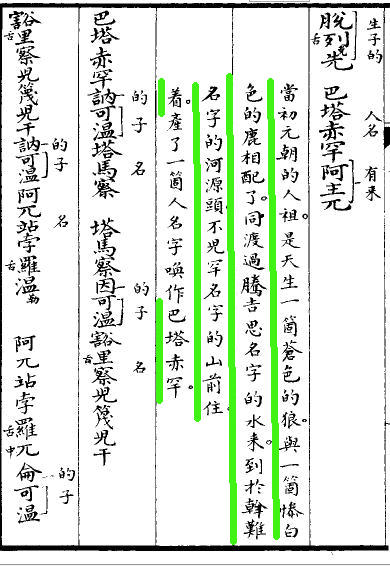 生子的 人名 有来
脫舌列克先 巴塔赤罕阿主兀
當初元朝的人祖。是天生一箇蒼色的狼。與一箇慘白
色的鹿相配了。同渡過騰吉思名字的水来。到於斡難
名字的河源頭。不兒罕名字的山前住
着。產了一箇人。名字喚作巴塔赤罕。
的 子 名 的 子 名
巴塔赤罕訥可溫塔馬察 塔馬察因可溫豁舌里察兒篾兒干
的子 名 的子
豁舌里察兒篾兒干訥可溫阿兀站孛舌羅溫勒 阿兀站孛舌羅兀中侖可溫